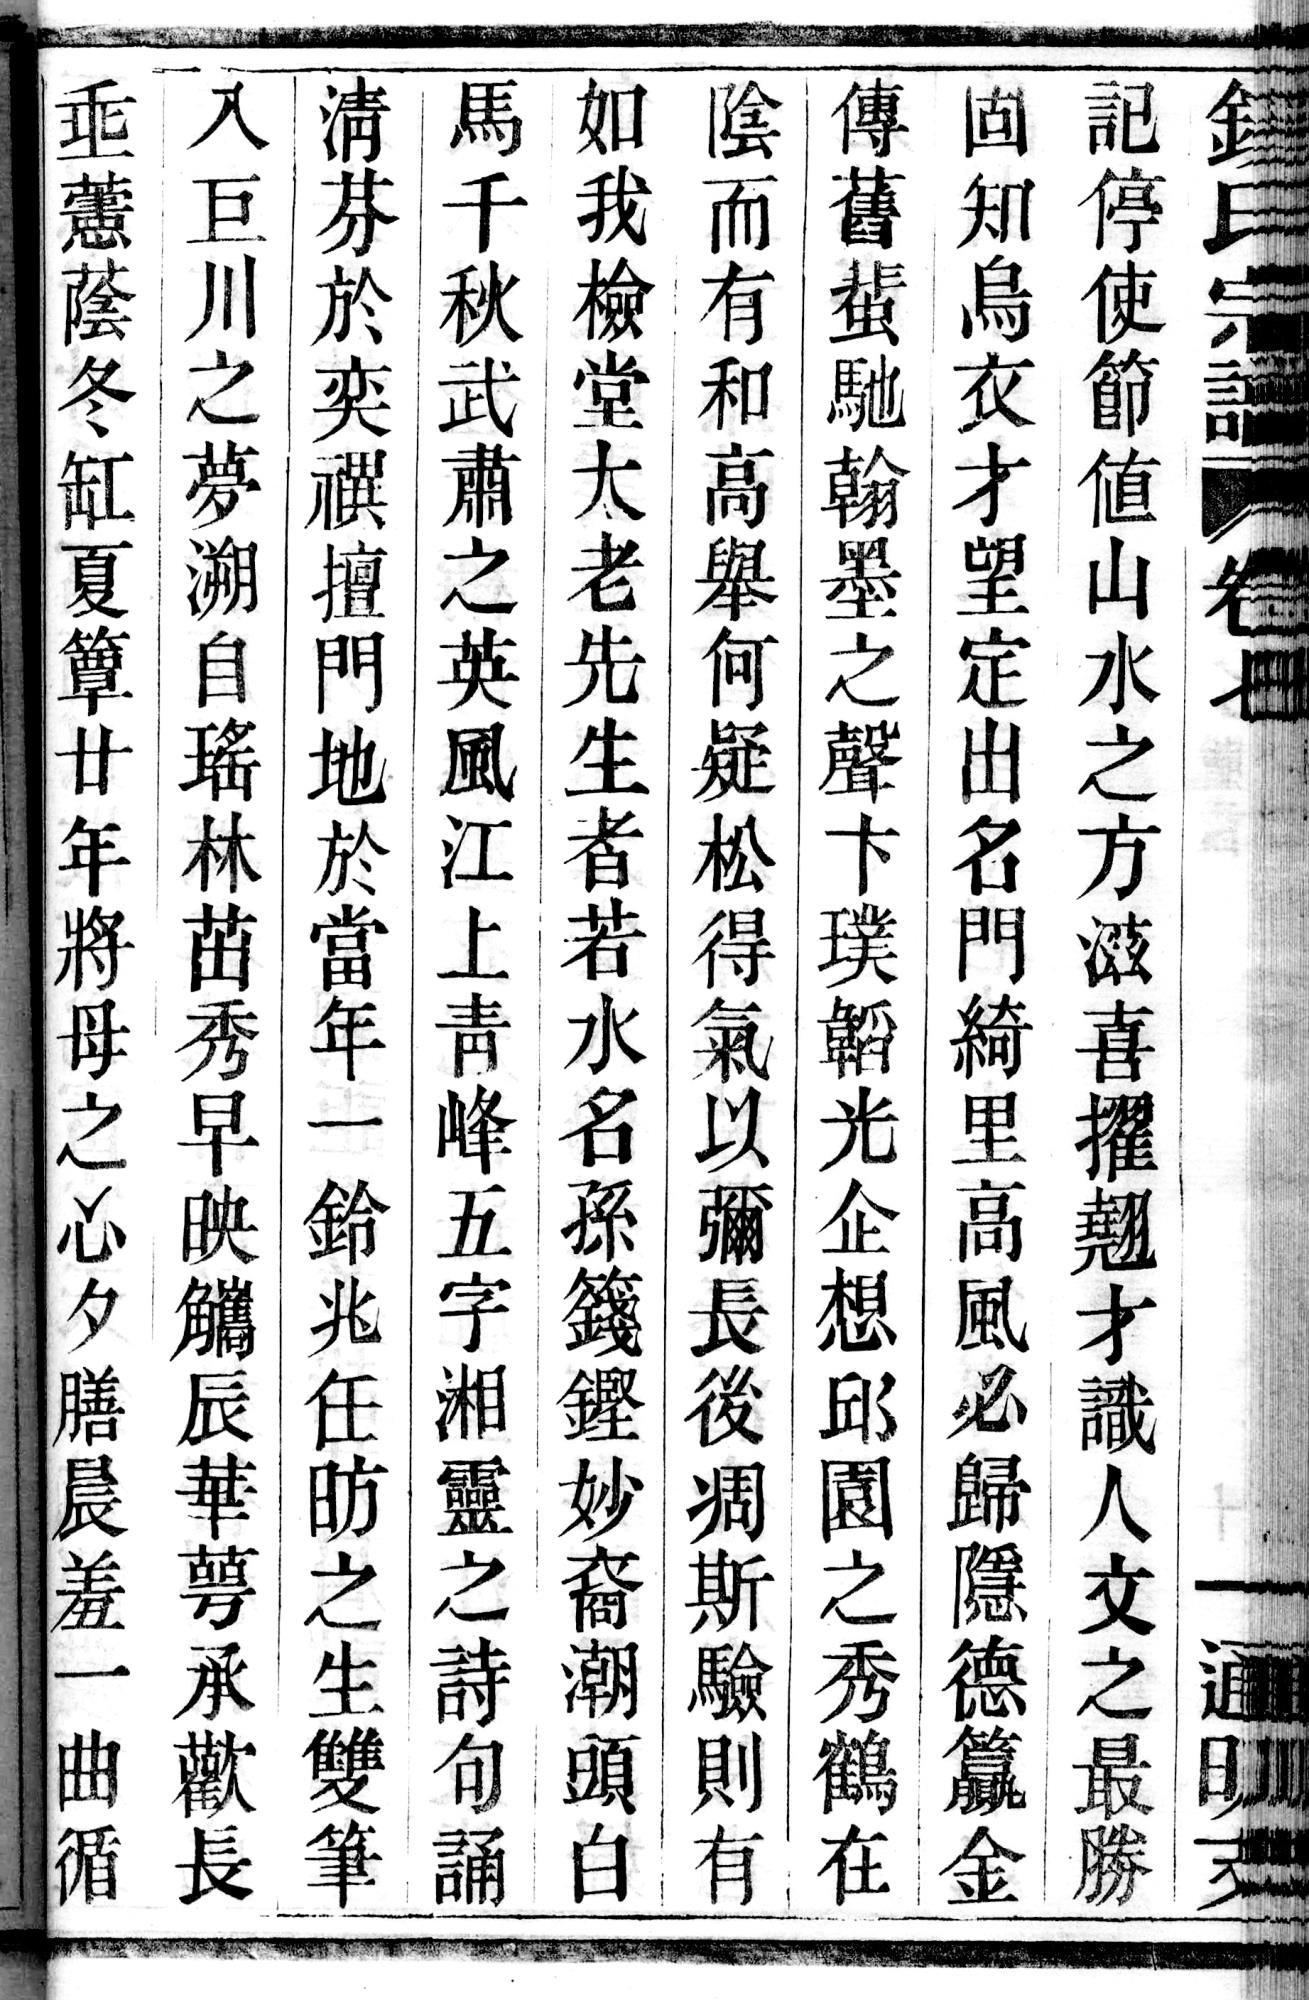 錢氏宗譜 卷四 通明支
記停使節値山水之方滋喜擢翹才識人文之最勝
固知烏衣才望定出名門綺里高風必歸隱德籯金
傳舊蜚馳翰墨之聲卞璞韜光企想邱園之秀鶴在
陰而有和高舉何疑松得氣以彌長後凋斯驗則有
如我檢堂大老先生者若水名孫籛鏗妙裔潮頭白
馬千秋武肅之英風江上靑峰五字湘靈之詩句誦
淸芬於奕禩擅門地於當年一鈴兆任昉之生雙筆
入巨川之夢溯自瑤林茁秀早映觿辰華萼承歡長
垂蕙蔭冬缸夏簟廿年將母之心夕膳晨羞一曲循